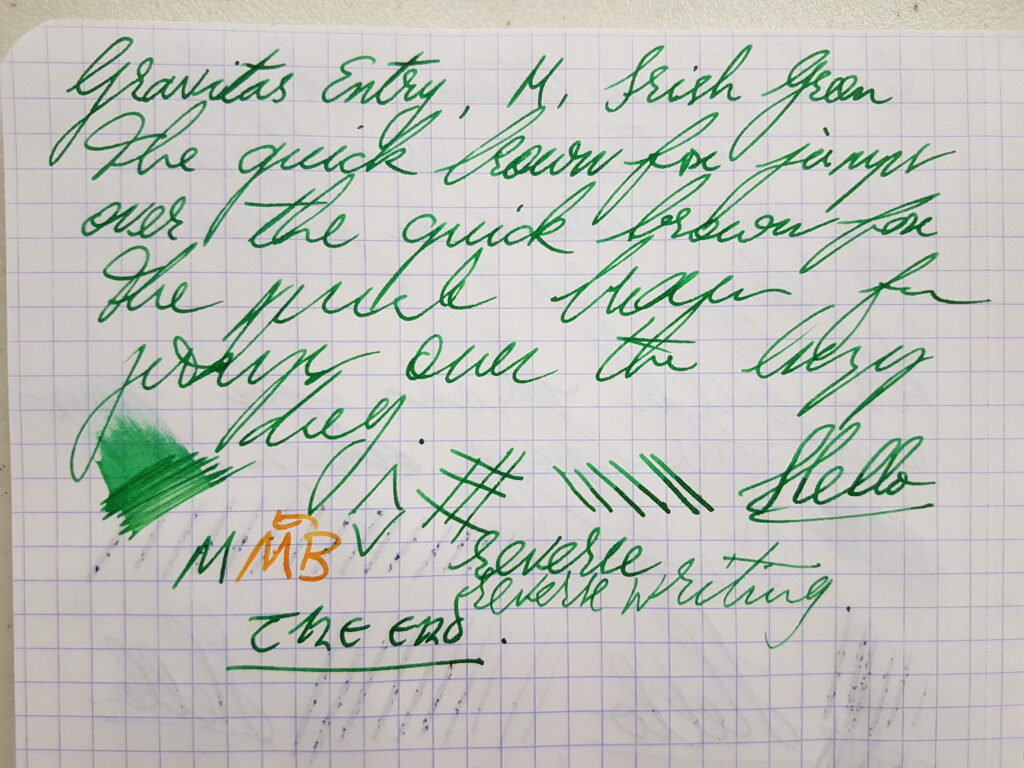 Gravitas Entry, M, Irish Green
The quick brown fox jumps
over the quick brown fox
The
jumps over the lazy
dog.
Hello
M MB
reverse
reverse writing.
THE END.